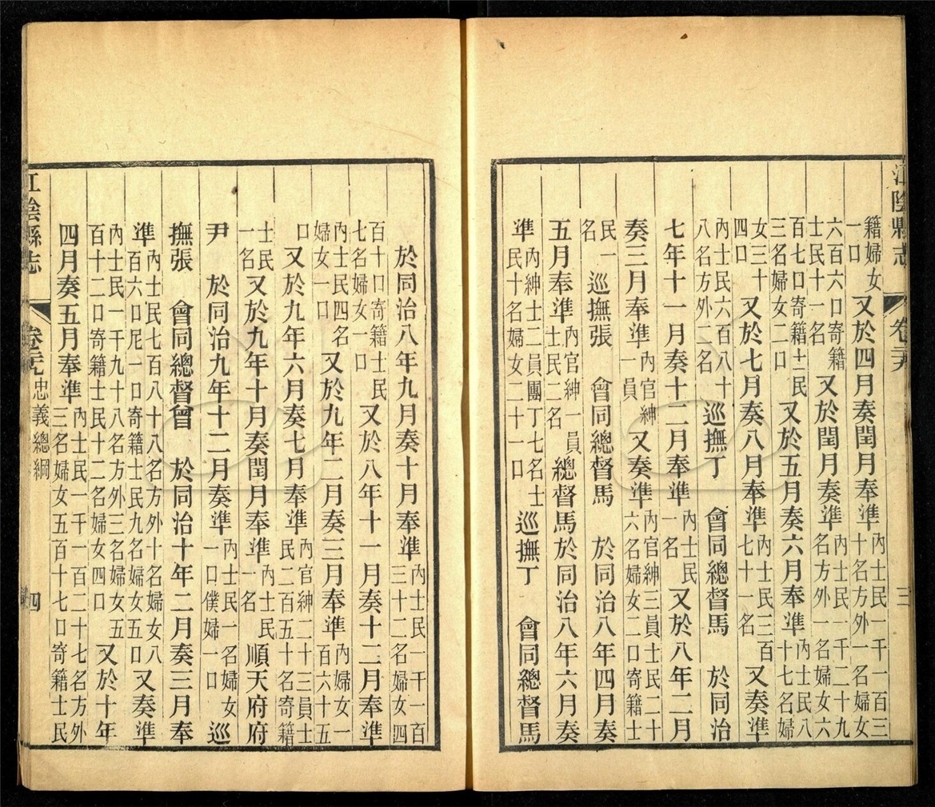 江陰縣志 卷 三
籍婦女一口 又於四月奏閏月奉準 內士民一千一百三十名方外一名婦女
六百六口寄籍士民十一名 又於閏月奏準 內士民一千二十九名方外一名婦女六
百七口寄籍士民三名婦女二口 又於五月奏六月奉準 內士民八十七名婦
女三十四口 又於七月奏八月奉準 內士民三百七十一名 又奏準
內士民六百八十八名方外二名 巡撫丁 會同總督馬 於同治
七年十一月奏十二月奉準 內士民一名 又於八年二月
奏三月奉準 內官紳一員 又奏準 內官紳三員士民二十六名婦女二口寄籍士
民一名 巡撫張 會同總督馬 於同治八年四月奏
五月奉準 內官紳一員士民二名 總督馬於同治八年六月奏
準 內紳士二員團丁七名士民十名婦女二十一口 巡撫丁 會同總督馬
於同治八年九月奏十月奉準 內士民一千一百三十二名婦女四
百十口寄籍士民七名婦女一口 又於八年十一月奏十二月奉準
內士民四名婦女一口 又於九年二月奏三月奉準 內婦女一百六十五
口 又於九年六月奏七月奉準 內官紳二十三員士民二百五十名寄籍
士民一名 又於九年十月奏閏月奉準 內士民一名 順天府府
尹 於同治九年十二月奏準 內士民一名婦女一口僕婦一口 巡
撫張 會同總督曾 於同治十年二月奏三月奉
準 內士民七百八十八名方外十名婦女八百六口尼一口寄籍士民九名婦女五口 又奏準
內士民一千九十八名方外三名婦女五百十二口寄籍士民十二名婦女四口 又於十年
四月奏五月奉準 內士民一千一百二十七名方外三名婦女五百十七口寄籍士民
江陰縣志 卷 忠義總綱 四